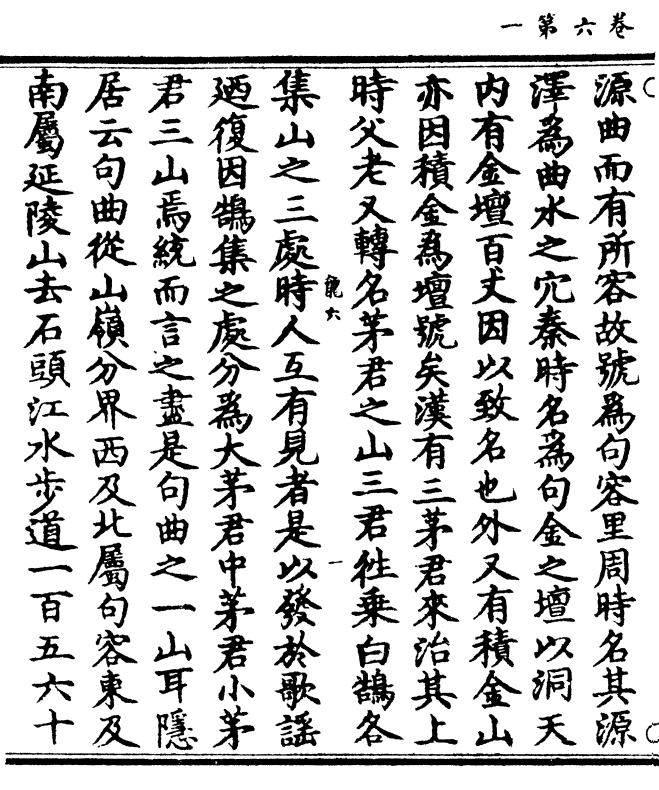 卷六第一
源曲而有所容故號為句容里周時名其源
澤為曲水之穴秦時名為句金之壇以洞天
内有金壇百丈因以致名也外又有積金山
亦因積金為壇號矣漢有三茅君來治其上
時父老又轉名茅君之山三君往乗白鵠各
龍六
一
集山之三處時人互有見者是以發於歌謡
廼復因鵠集之處分為大茅君中茅君小茅
君三山焉統而言之盡是句曲之一山耳隱
居云句曲從山嶺分界西及北屬句容東及
南屬延陵山去石頭江水步道一百五六十